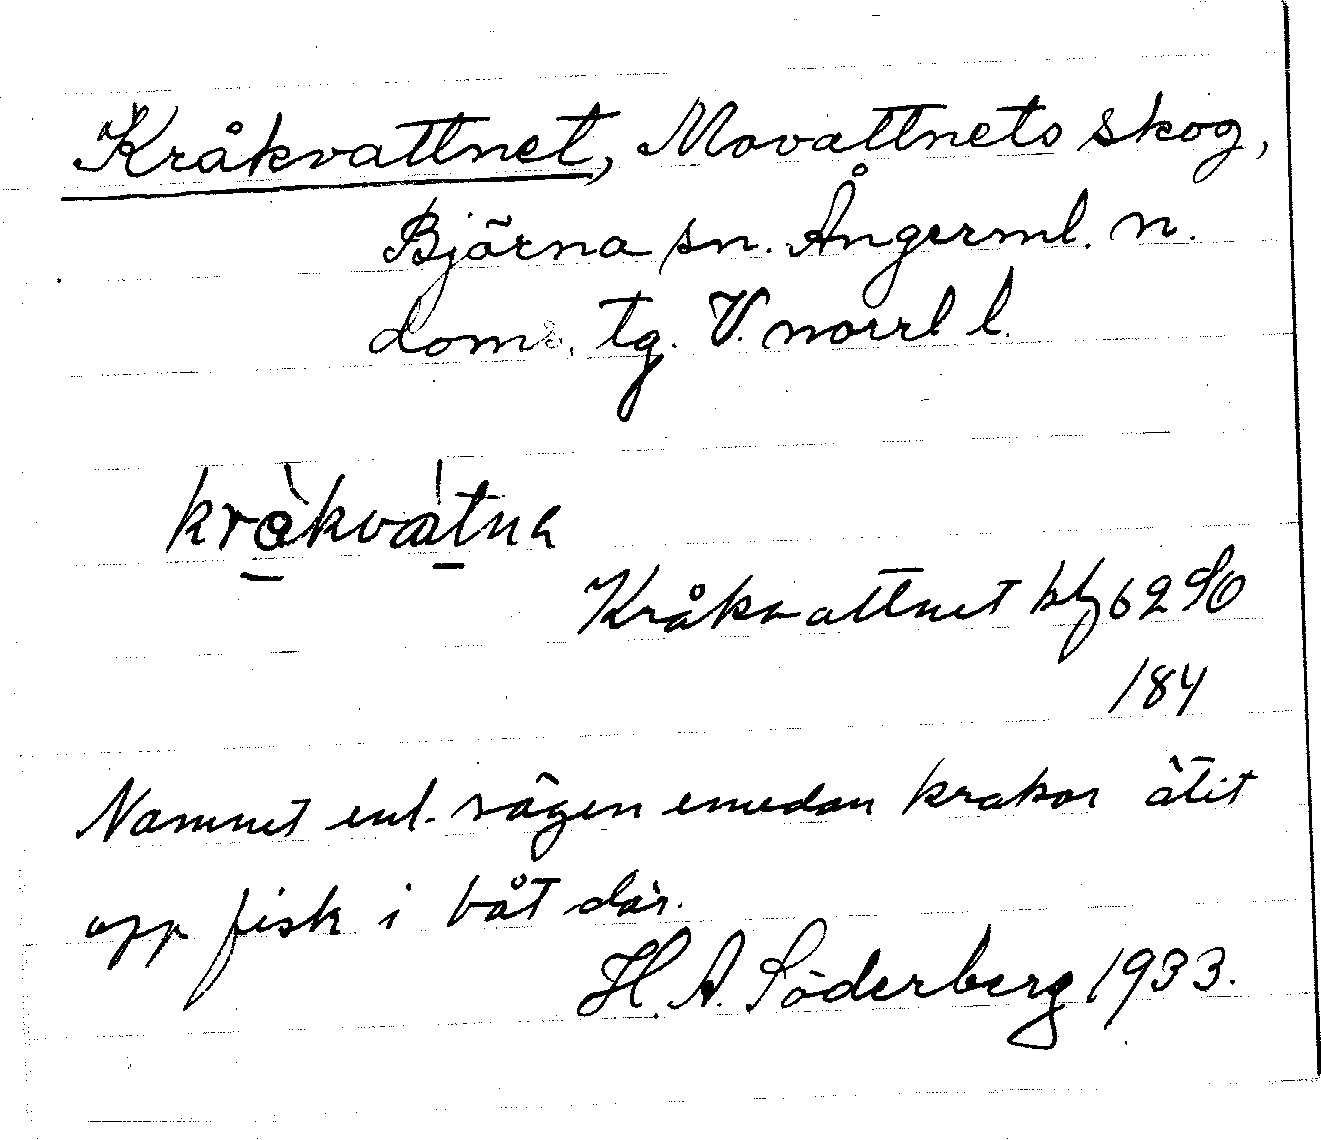 Kråkvattnet, Movattnets skog,
Björna sn. Ångerml. n.
doms. tg. V. norrl l.
kråkvatna
Kråkvattnet bl 62 SO
184
Namnet enl. sägen emedan krakor ätit
opp fisk i båt där.
H. A. Söderberg 1933.